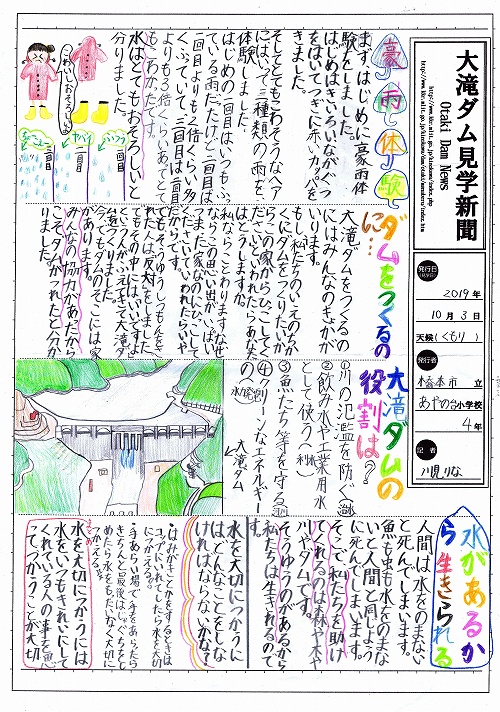 大滝ダム見学新聞
Otaki Dam News
発行日
2019年
10月3日
天候(くもり)
発行者
橋本市立
あやの台小学校
4年
記者
豪雨体験
まずはじめに豪雨体
験をしました。
はじめはきいろいながぐつ
をはいてつぎに赤いカッパを
きました。
そしてとてもこわそうなへや
にはいって三種類の雨を
体験しました。
はじめの一回目はいつもふっ
ている雨だったけど二回目は
一回目よりも2倍くらい多
くふっていて三回目は二回目
よりも3倍くらいあってとて
もこわかったです。
水はとてもおそろしいと
分りました。
こわいしおそろしいよ
一回目
二回目
三回目
ダムをつくるの
に…
大滝ダムをつくるの
にはみんなのきょかが
いります。
もし、私たちのいえのちか
くにダムをつくりたいか
らこの家からひっこしてく
ださいといわれたらあなた
はどうしますか。
私ならことわります。なぜ
ならこの思い出がいっぱい
つまった家なのにひっこし
てくださいといわれたらいや
だからです。
みんなの協力があったから
こそダムがつくれたと分か
りました。
大滝ダムの
役割は?
①川の氾濫を防ぐ
②飲み水や工業用水
として使う(利水)
③魚たち等を守る
④クリーンなエネルギー
水力発電
大滝ダム
水があるか
ら生きられる
人間は水をのまない
と死んでしまいます。
魚も虫も水をのまな
いと人間と同じよう
に死んでしまいます。
そこで私たちを助け
てくれるのは森や木や
川やダムです。
そうゆうのがあるから
私たちは生きれるので
す。
水を大切につかうに
はどんなことをしな
ければならないかな?
・はみがきとかをするときは
コップにいれてしたら水を大切
につかえる。
・手あらい場で手をあらったら
水を大切につかうには
水をいつもきれいにして
くれている人の事を思
ってつかうことが大切